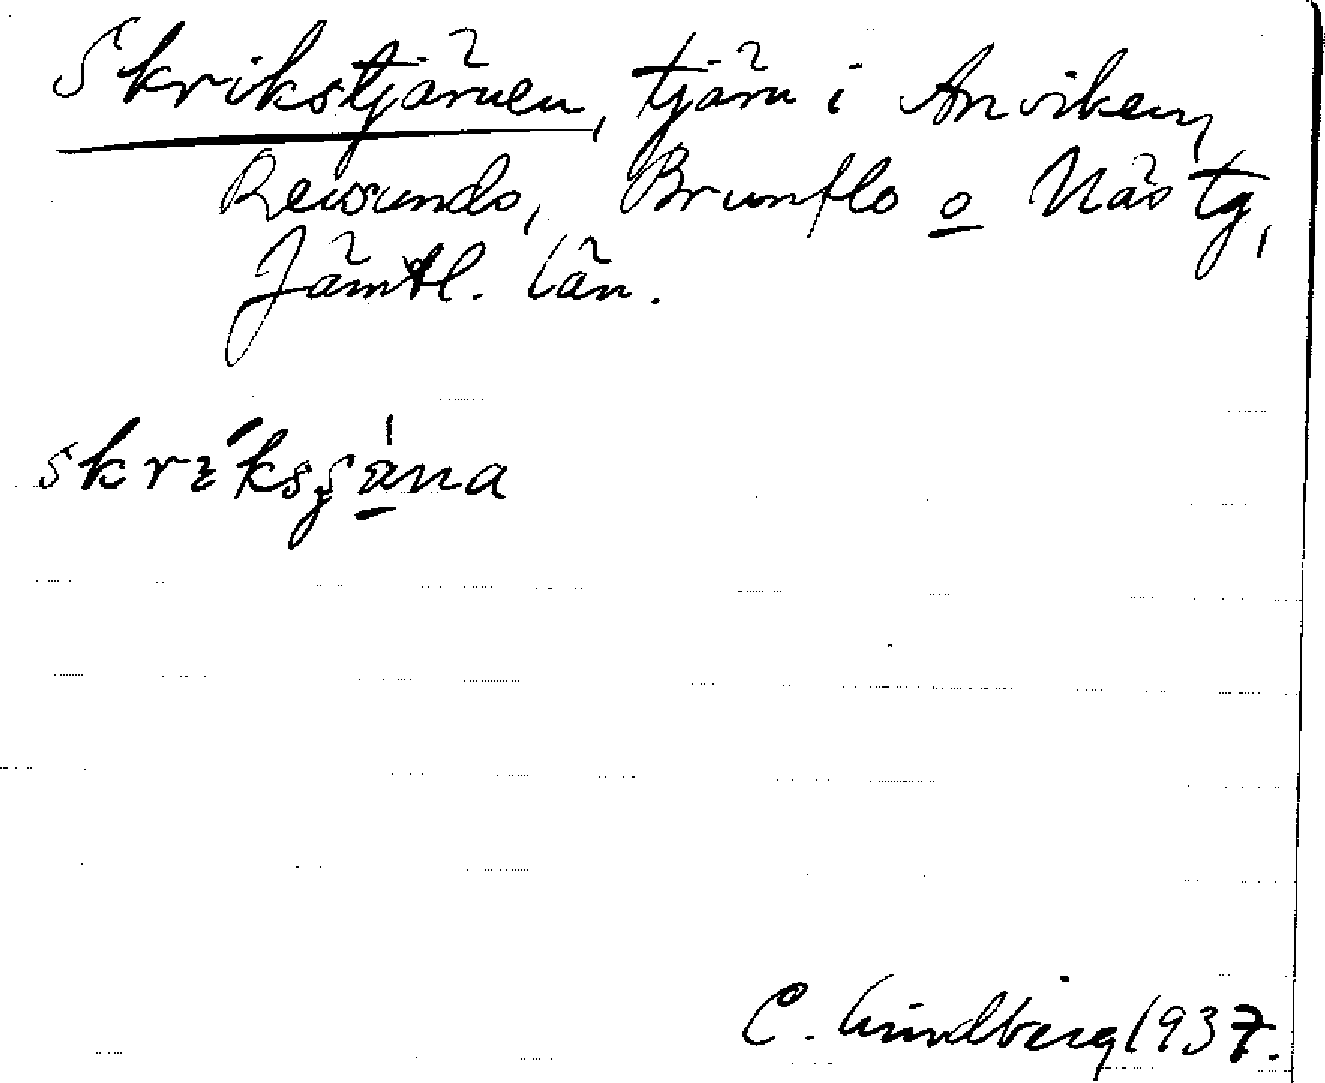 Skrikstjärnen, tjärn i Anviken,
Revsunds, Brunflo o Näs tg,
Jämtl. län.
C. Lindberg 1937.